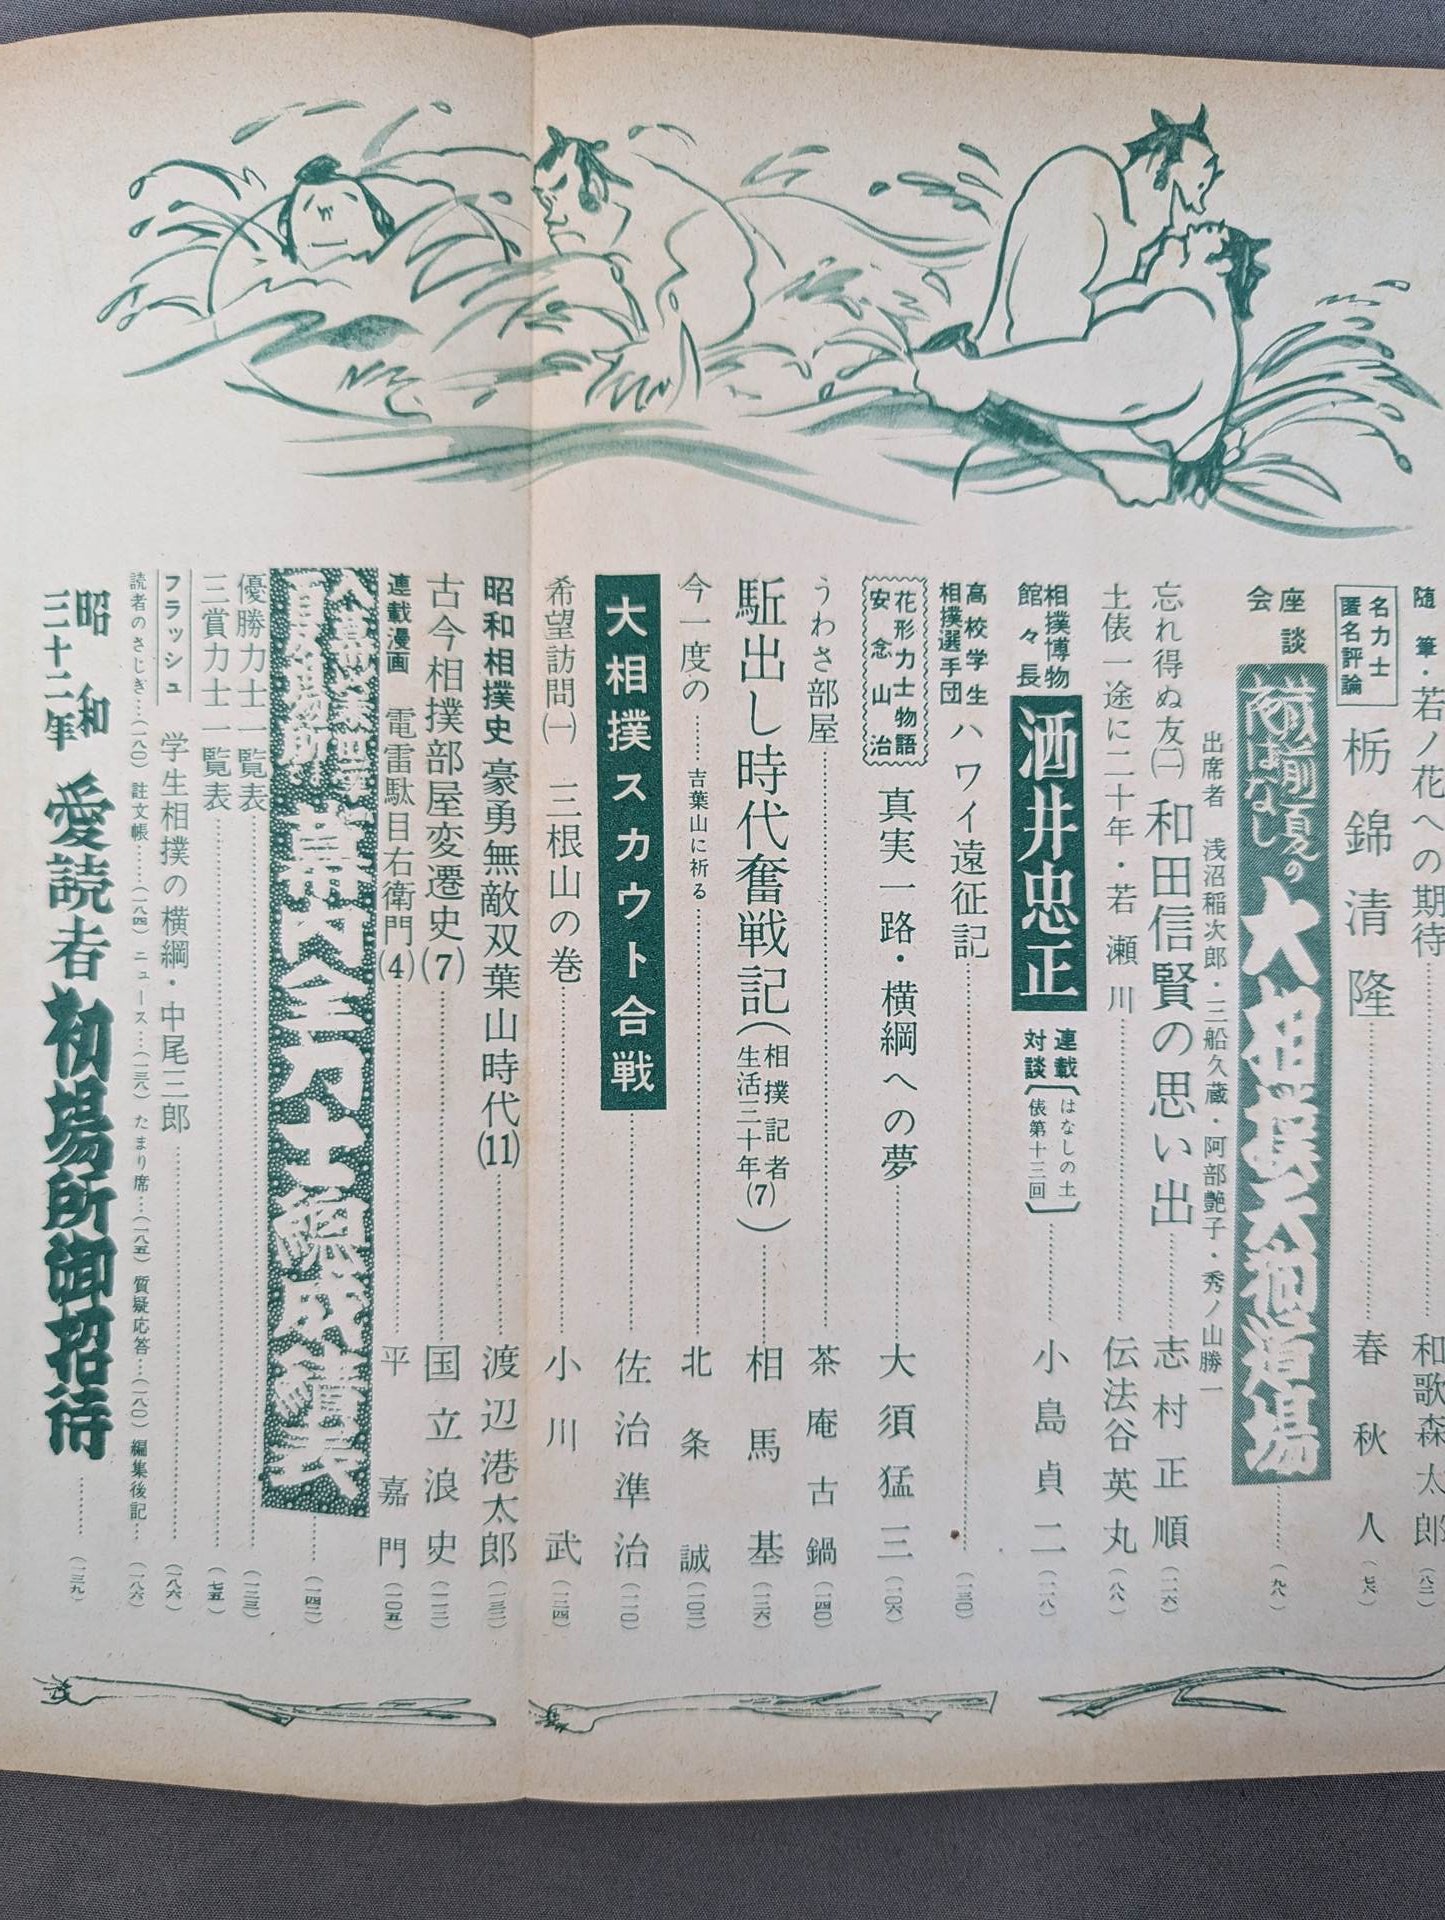 随筆・若ノ花への期待……和歌森太郎(八二)
名力士匿名評論 栃錦清隆……春秋人(七六)
座談会 大相撲大福道場……(九八)
出席者 浅沼稲次郎・三船久蔵・阿部艶子・秀ノ山勝一
忘れ得ぬ友(二) 和田信賢の思い出……志村正順(一一六)
土俵一途に二十年・若瀬川……伝法谷英丸(八八)
相撲博物館々長 酒井忠正 連載対談〔はなしの土俵第十三回〕……小島貞二(一一八)
高校学生相撲選手団 ハワイ遠征記……(一三〇)
花形力士物語 安念山治 真実一路・横綱への夢……大須猛三(一〇六)
うわさ部屋……茶庵古鍋(一四〇)
駈出し時代奮戦記(相撲記者生活三十年(7))……相馬基(一三六)
今一度の……吉葉山に祈る……北条誠(一〇二)
大相撲スカウト合戦……佐治準治(一一〇)
希望訪問(一) 三根山の巻……小川武(一二四)
昭和相撲史 豪勇無敵双葉山時代(11)……渡辺港太郎(一三二)
古今相撲部屋変遷史(7)……国立浪史(一一二)
連載漫画 電雷駄目右衛門(4)……平嘉門(一〇五)
幕内全力士……(一四二)
優勝力士一覧表……(一一三)
三賞力士一覧表……(七五)
フラッシュ 学生相撲の横綱・中尾三郎……(一八六)
読者のさじき…(一八〇) 註文帳……(一八四) ニュース…(一三八) たまり席…(一八五) 質疑応答…(一八〇) 編集後記…(一八六)
昭和三十二年 愛読者初場所御招待……(一三九)